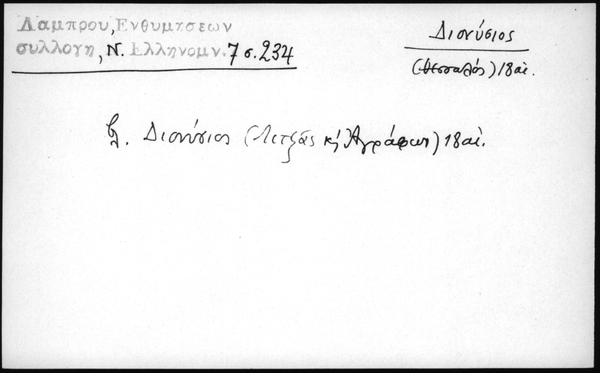 Λαμπρου, Ενθυμησεων
συλλογη, Ν. Ελληνομν. 7 σ. 234
Διονύσιος
(Θεσσαλός) 18 αἰ.
βλ. Διονύσιος (Λιτζᾶς κ' Ἀγράφων) 18 αἰ.